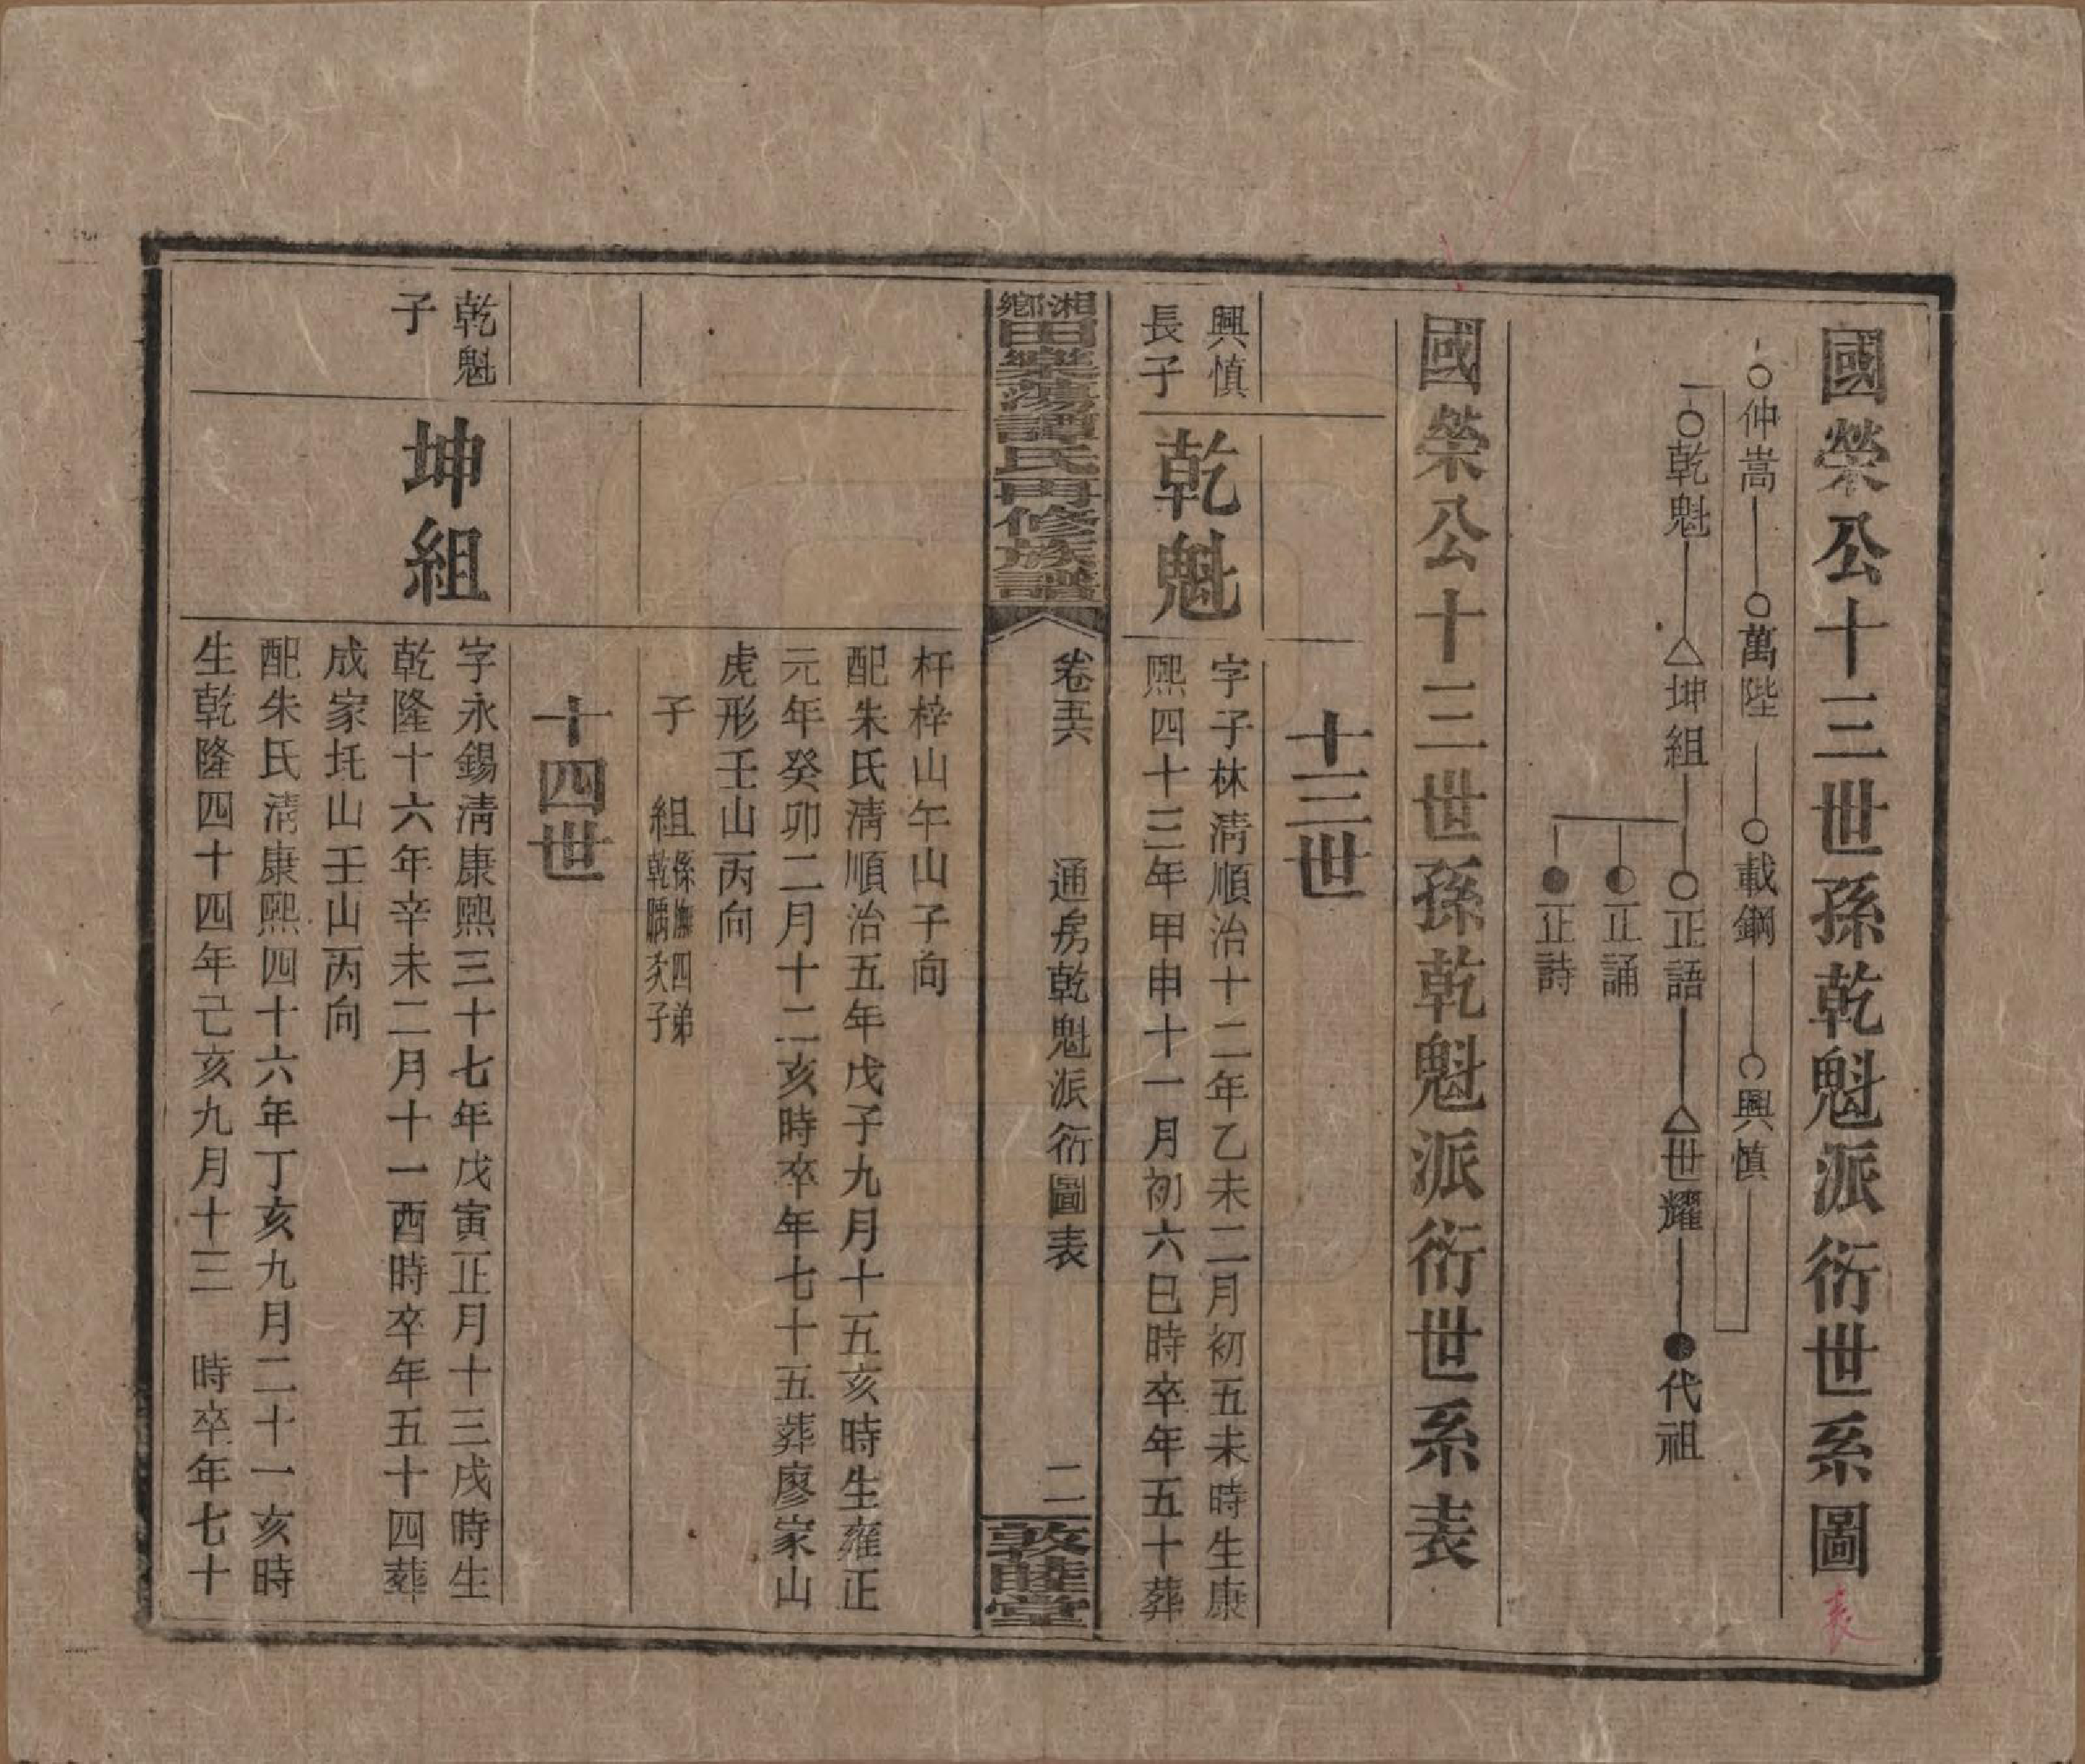 國榮公十三世孫乾魁派衍世系圖
表
仲嵩 萬陛 載鋼 興慎
乾魁 坤組 正語 世耀 代祖
正誦
正詩
國榮公十三世孫乾魁派衍世系表
十三世
興慎
長子
乾魁
字子林淸順治十二年乙未二月初五未時生康
熙四十三年甲申十一月初六巳時卒年五十葬
湘鄕田樂蕩譚氏再修族譜
卷五六 通房乾魁派衍圖表 二
敦睦堂
杆梓山午山子向
配朱氏淸順治五年戊子九月十五亥時生雍正
元年癸卯二月十二亥時卒年七十五葬廖家山
虎形壬山丙向
子 組係撫四弟
乾 次子
十四世
乾魁
子
坤組
字永錫淸康熙三十七年戊寅正月十三戌時生
乾隆十六年辛未二月十一酉時卒年五十四葬
成家圫山壬山丙向
配朱氏淸康熙四十六年丁亥九月二十一亥時
生乾隆四十四年己亥九月十三 時卒年七十